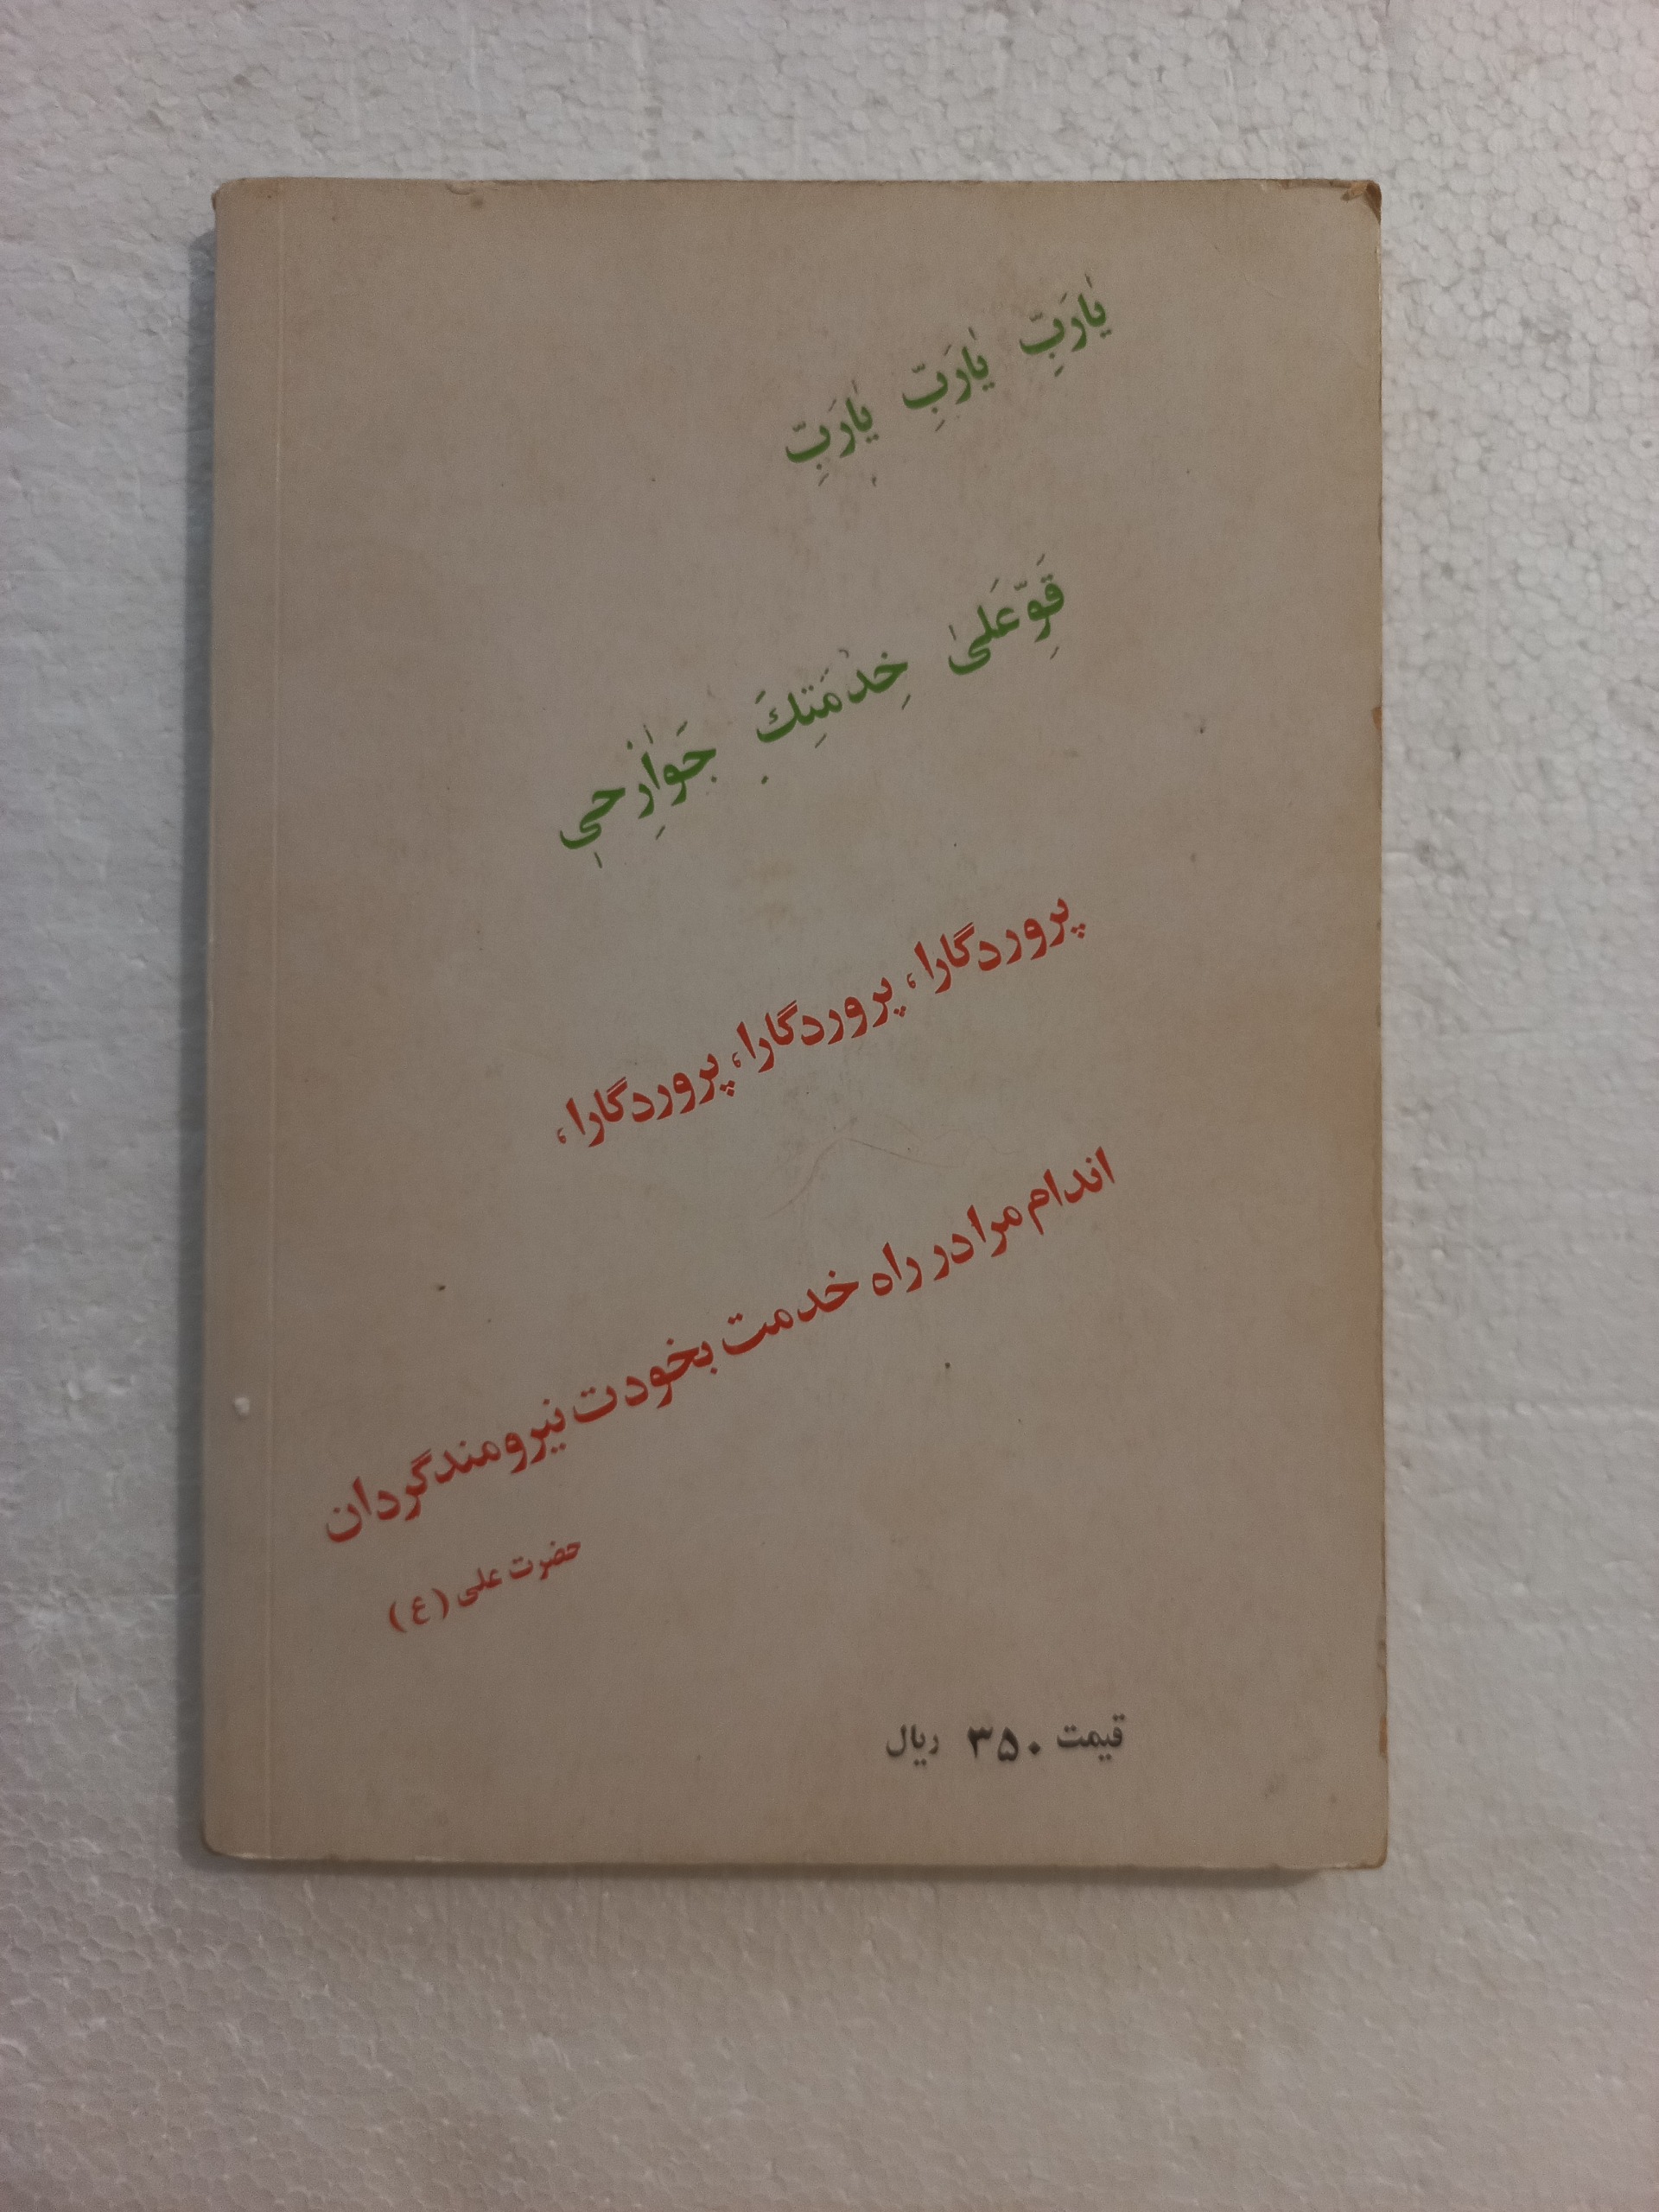 یٰارَبِّ یٰارَبِّ یٰارَبِّ
قَوِّ عَلیٰ خِدْمَتِكَ جَوٰارِحِی
پروردگارا، پروردگارا، پروردگارا،
اندام مرا در راه خدمت بخودت نیرومند گردان
حضرت علی (ع)
قیمت ۳۵۰ ریال